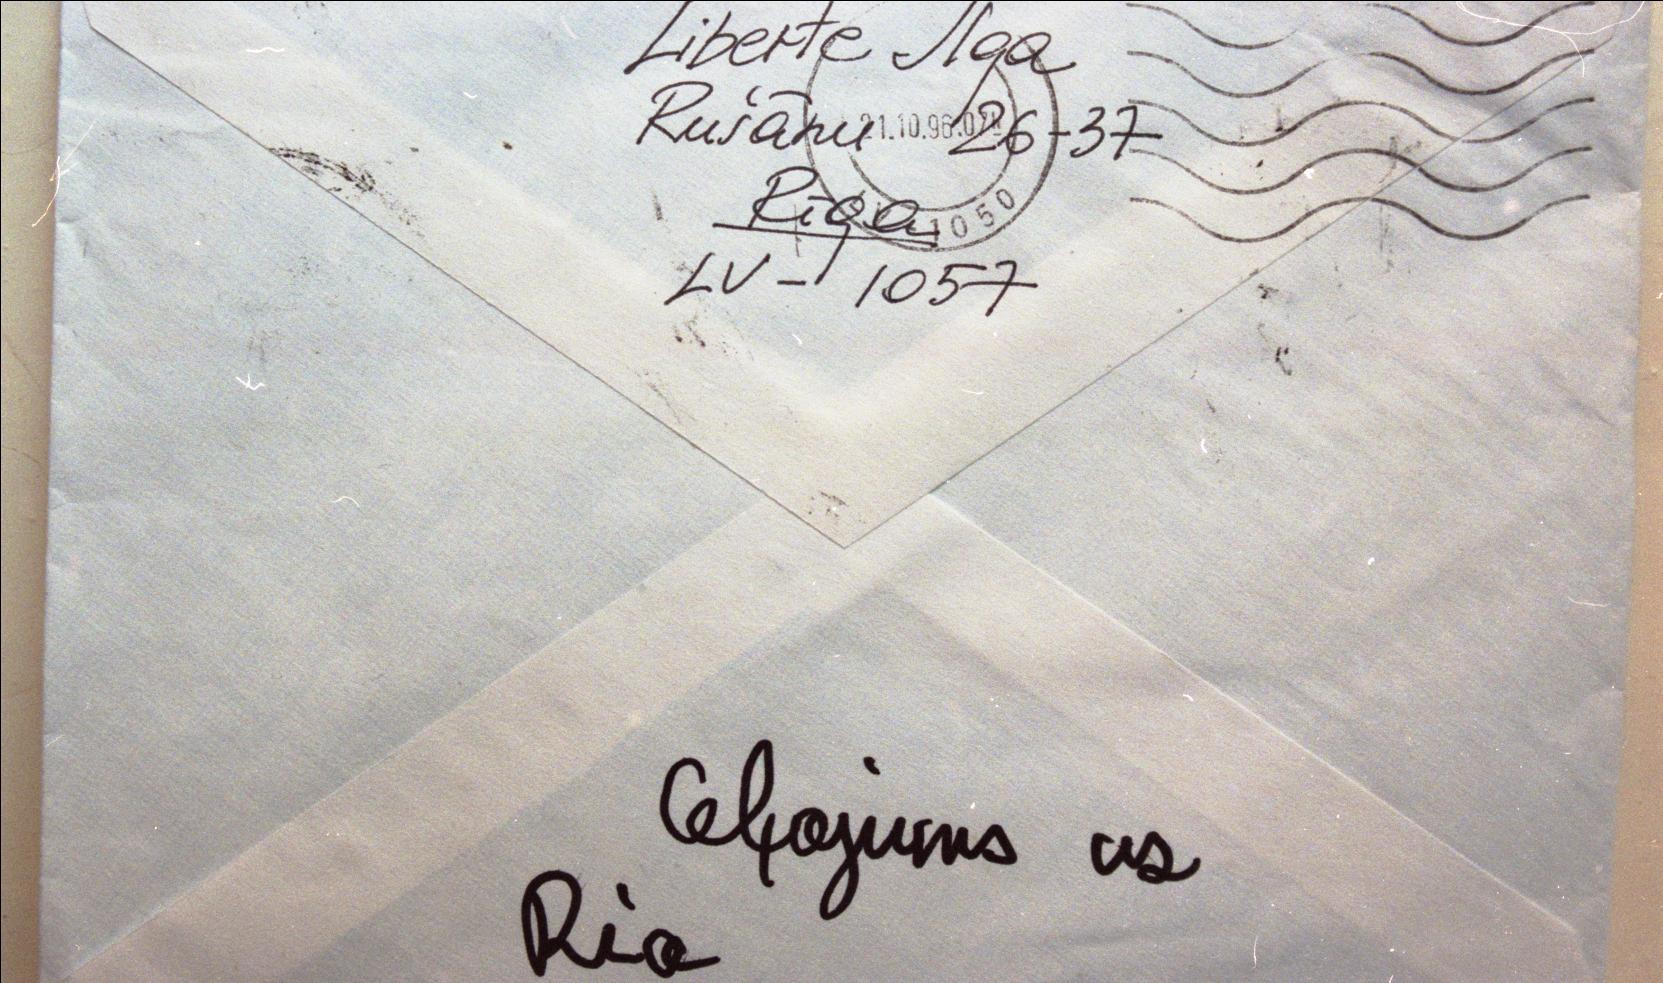 Liberte Ilga
Rušānu 26-37
21.10.96.07
Rīga
1050
LV-1057
Ceļojums us
Rio